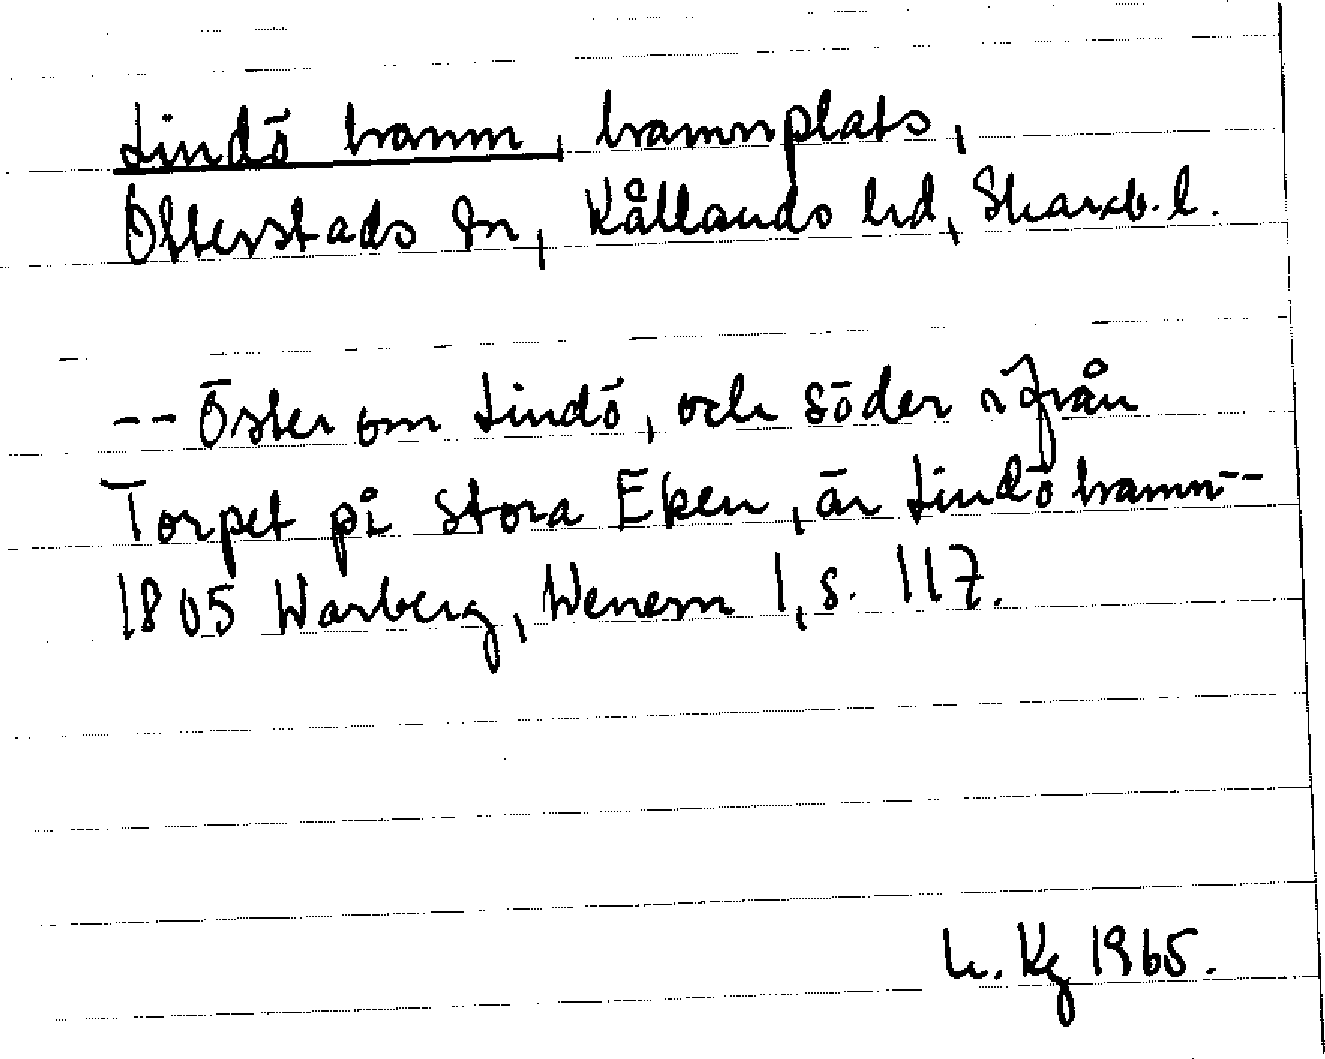 Lindö hamn, hamnplats,
Otterstads sn, Kållands hd, Skarab. l.
-- Öster om Lindö, och söder ifrån
Torpet på Stora Eken, är Lindö hamn --
1805 Warberg, Wenern 1, s. 117.
h. Kg 1965.